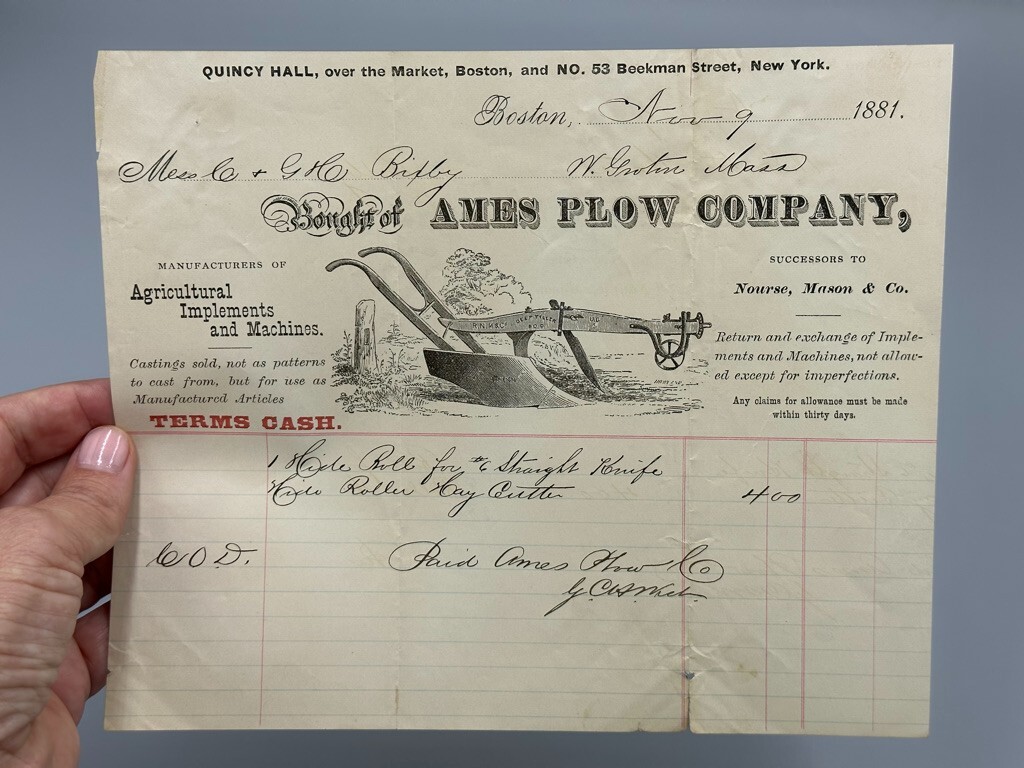 QUINCY HALL, over the Market, Boston, and NO. 53 Beekman Street, New York.
Boston, Nov 9 1881.
Mess C & G H Bixby W. Groton Mass
Bought of AMES PLOW COMPANY,
MANUFACTURERS OF
Agricultural
Implements
and Machines.
Castings sold, not as patterns
to cast from, but for use as
Manufactured Articles
TERMS CASH.
SUCCESSORS TO
Nourse, Mason & Co.
Return and exchange of Imple-
ments and Machines, not allow-
ed except for imperfections.
Any claims for allowance must be made
within thirty days.
1 Hide Roll for #6 Straight Knife
Hide Roller Hay Cutter 400
C O D. Paid Ames Plow Co